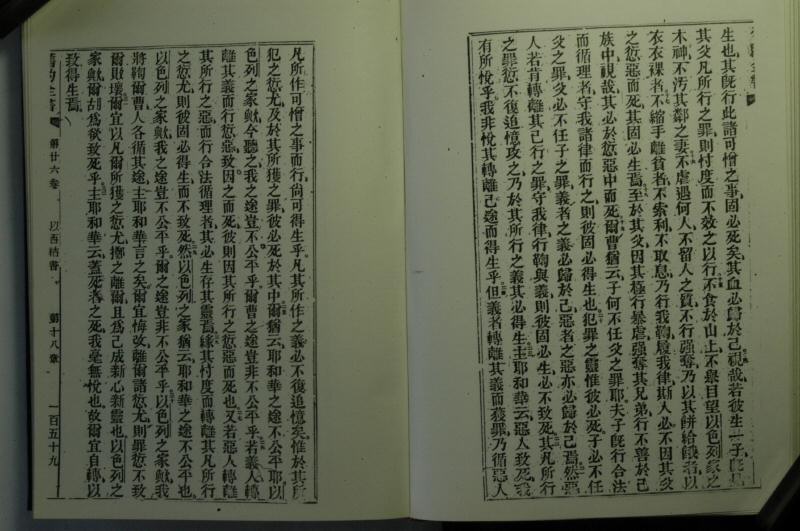 生也其既行此諸可憎之事固必死矣其血必歸於己視哉若彼生一子
其父凡所行之罪則忖度而不效之以行不食於山上不舉目望以色列家之
木神不汚其鄰之妻不虐遇何人不留人之質不行强奪乃以其餅給餓者以
衣衣裸者不縮手離貧者不索利不取息乃行我鞫履我律斯人必不因其父
之愆惡而死其固必生焉至於其父因其極行暴虐强奪其兄弟行不善於己
族中視哉其必於愆惡中而死爾曹猶云子何不任父之罪耶夫子既行合法
而循理者守我諸律而行之則彼固必得生也犯罪之靈惟彼必死子必不任
父之罪父必不任子之罪義者之義必歸於己惡者之惡亦必歸於己焉然惡
人若肯轉離其己行之罪守我律行鞫與義則彼固必生必不致死其凡所行
之罪愆不復追憶攻之乃於其所行之義其必得生主耶和華云惡人致死我
有所悅乎我非悅其轉離己途而得生乎但義者轉離其義而獲罪乃循惡人
凡所作可憎之事而行尚可得生乎凡其所作之義必不復追憶矣惟於其所
犯之愆尤及於其所獲之罪彼必死於其中爾猶云耶和華之途不公平耶以
色列之家歟今聽之我之途豈不公平乎爾曹之途豈非不公平乎若義人轉
離其義而行愆惡致因之而死彼則因其所行之愆惡而死也又若惡人轉離
其所行之惡而行合法循理者其必生存其靈焉緣其忖度而轉離其凡所行
之愆尤則彼固必得生而不致死然以色列之家猶云耶和華之途不公平也
以色列之家歟我之途豈不公平乎爾之途豈非不公平乎以色列之家歟我
將鞫爾曹人各循其途主耶和華言之矣爾宜悔改離爾諸愆尤則罪愆不致
爾敗壞爾宜以凡爾所獲之愆尤擲之離爾且爲己成新心新靈也以色列之
家歟爾胡爲欲致死乎主耶和華云蓋死者之死我毫無悅也故爾宜自轉以
致得生焉
舊約全書 第廿六卷 以西結書 第十八章 一百五十九